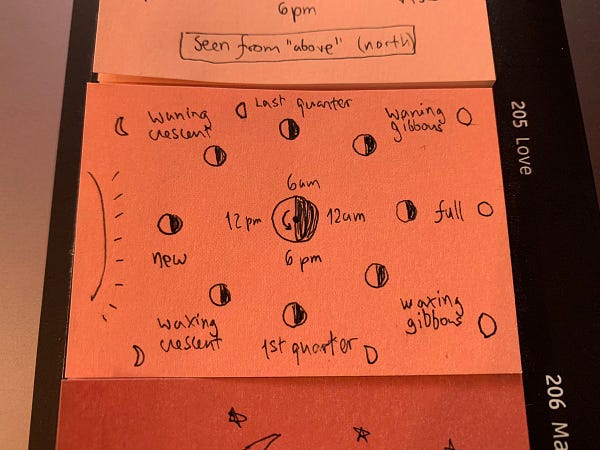 6 pm
Seen from "above" (north)
Waning
crescent
Last quarter
Waning
gibbous
6am
12 pm
12am
full
new
6 pm
Waxing
crescent
1st quarter
waxing
gibbous
205 Love
206 Ma